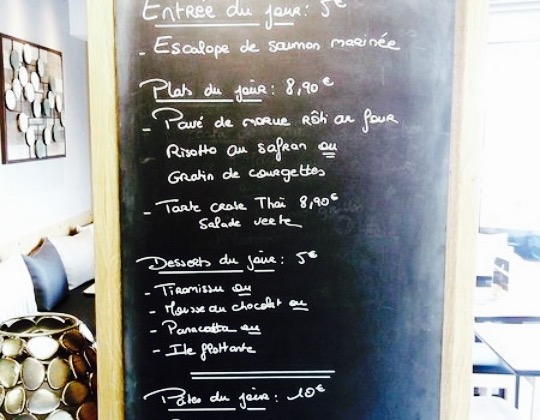 Entrée du jour: 5€
- Escalope de saumon marinée
Plats du jour: 8,90€
- Pavé de morue Rôti au four
Risotto au safran ou
Gratin de courgettes
- Tarte craie Thaï 8,90€
Salade verte
Desserts du jour: 5€
- Tiramissu ou
- Mousse au chocolat ou
- Panacotta ou
- Ile flottante
Pâtes du jour: 10€